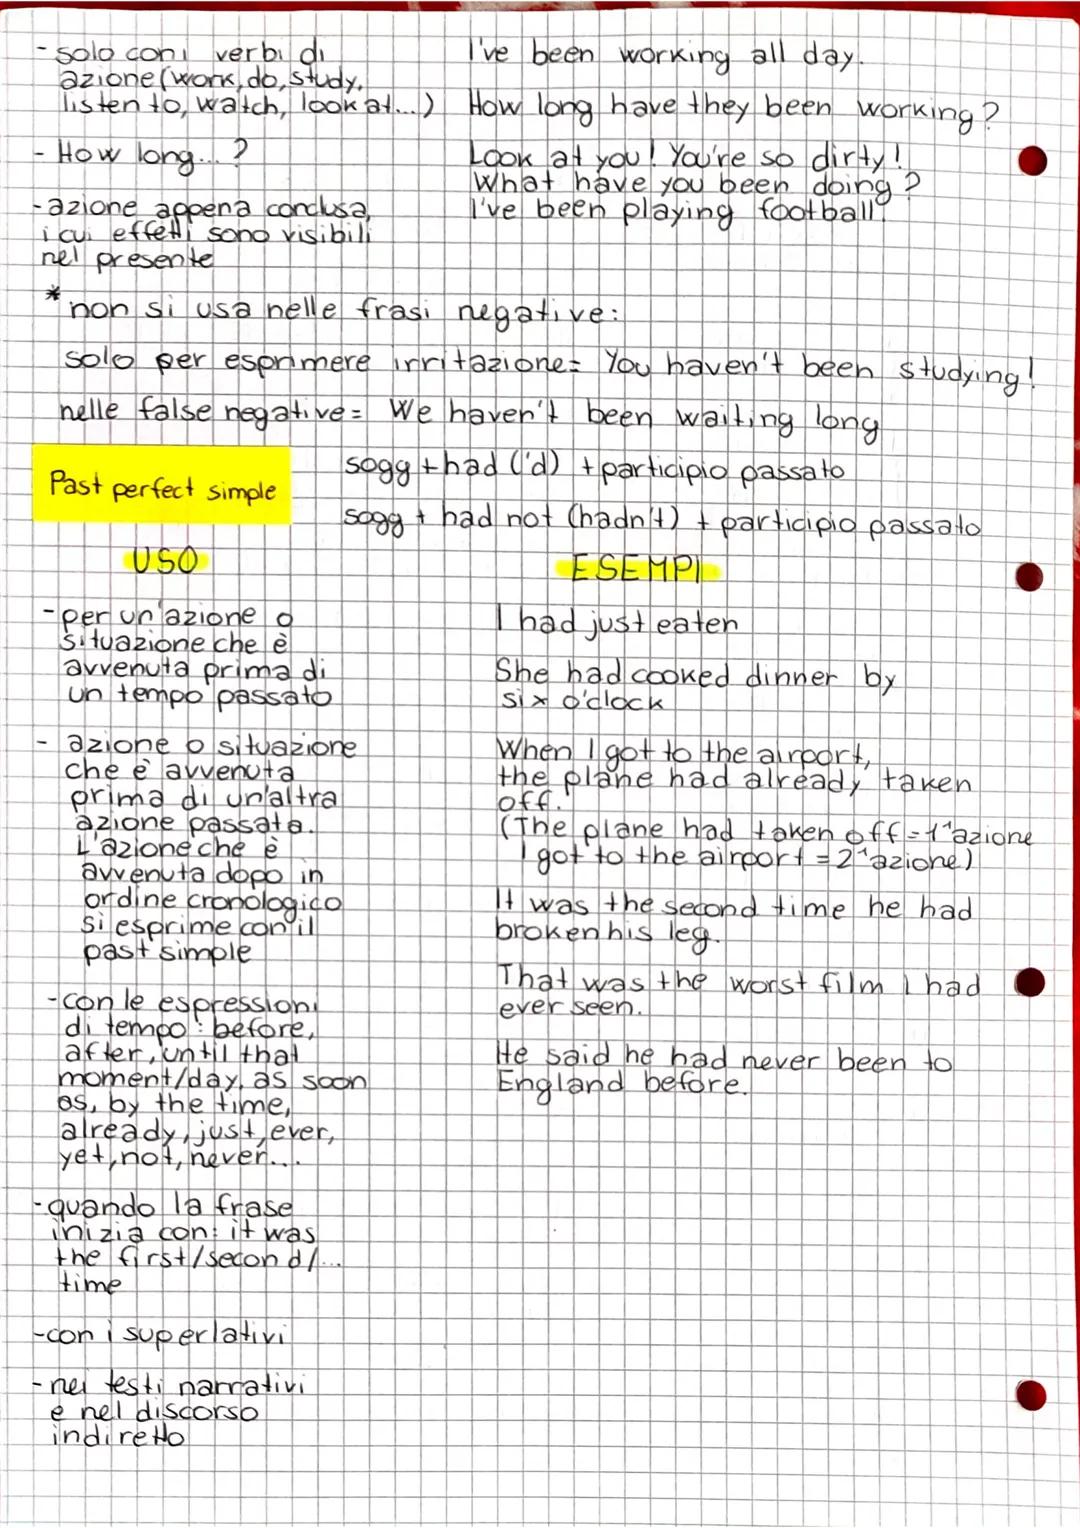 - solo con i verbi di
azione (work, do, study,
listen to, watch, look at...)
- How long... ?
- azione appena conclusa,
i cui effetti sono visibili
nel presente
I've been working all day.
How long have they been working?
Look at you! You're so dirty!
What have you been doing?
I've been playing football!
* non si usa nelle frasi negative:
solo per esprimere irritazione= You haven't been studying!
nelle false negative= We haven't been waiting long
Past perfect simple
sogg + had ('d) + participio passato
sogg + had not (hadn't) + participio passato
USO
- per un'azione o
situazione che è
avvenuta prima di
un tempo passato
- azione o situazione
che è avvenuta
prima di un'altra
azione passata.
L'azione che è
avvenuta dopo in
ordine cronologico
si esprime con il
past simple
- con le espressioni
di tempo: before,
after, until that
moment/day, as soon
as, by the time,
already, just, ever,
yet, not, never...
- quando la frase
inizia con: it was
the first/second/...
time
- con i superlativi
- nei testi narrativi
e nel discorso
indiretto
ESEMPI
I had just eaten
She had cooked dinner by
six o'clock
When I got to the airport,
the plane had already taken
off.
(The plane had taken off = 1ª azione
I got to the airport = 2ª azione)
It was the second time he had
broken his leg.
That was the worst film I had
ever seen.
He said he had never been to
England before.